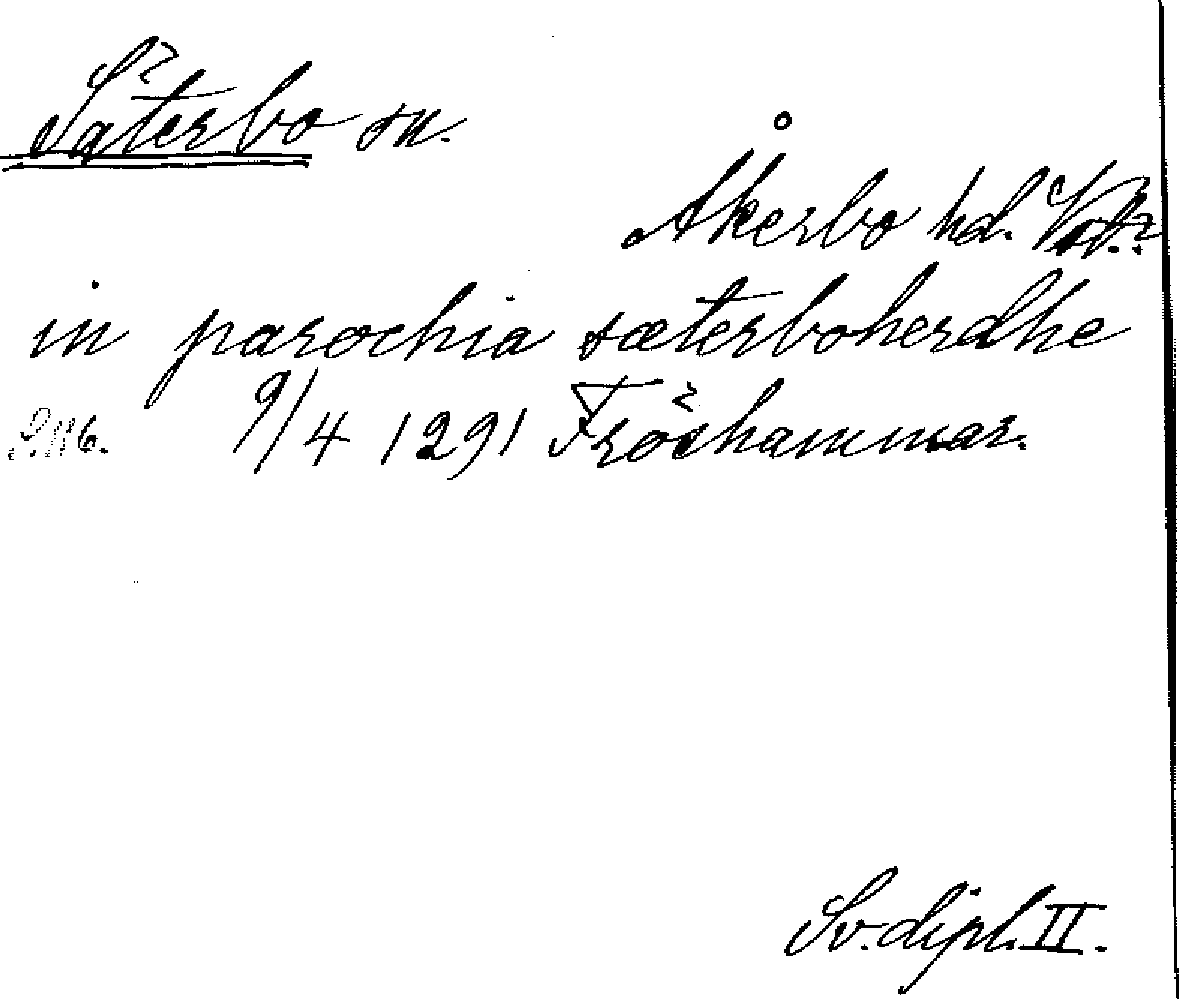 Säterbo sn.
Åkerbo hd.
in parochia sæterboherdhe
9/4 1291 Fröshammar.
Sv. dipl. II.